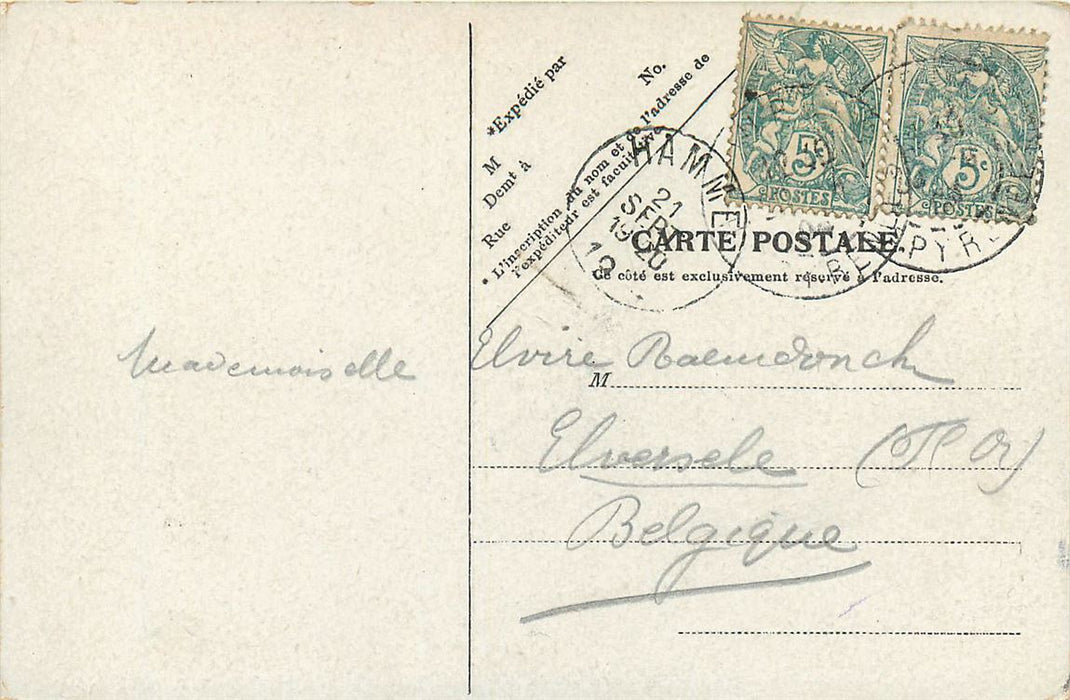 *Expédié par No.
M
Demt à
Rue
* L'inscription du nom et de l'adresse de
l'expéditeur est facultative
HAMME
21
SEPT
19 20
19
5c
POSTES
5c
POSTES
CARTE POSTALE
Ce côté est exclusivement réservé à l'adresse.
Mademoiselle Elvire Raemdonck
M
Elversele (Fl Or)
Belgique